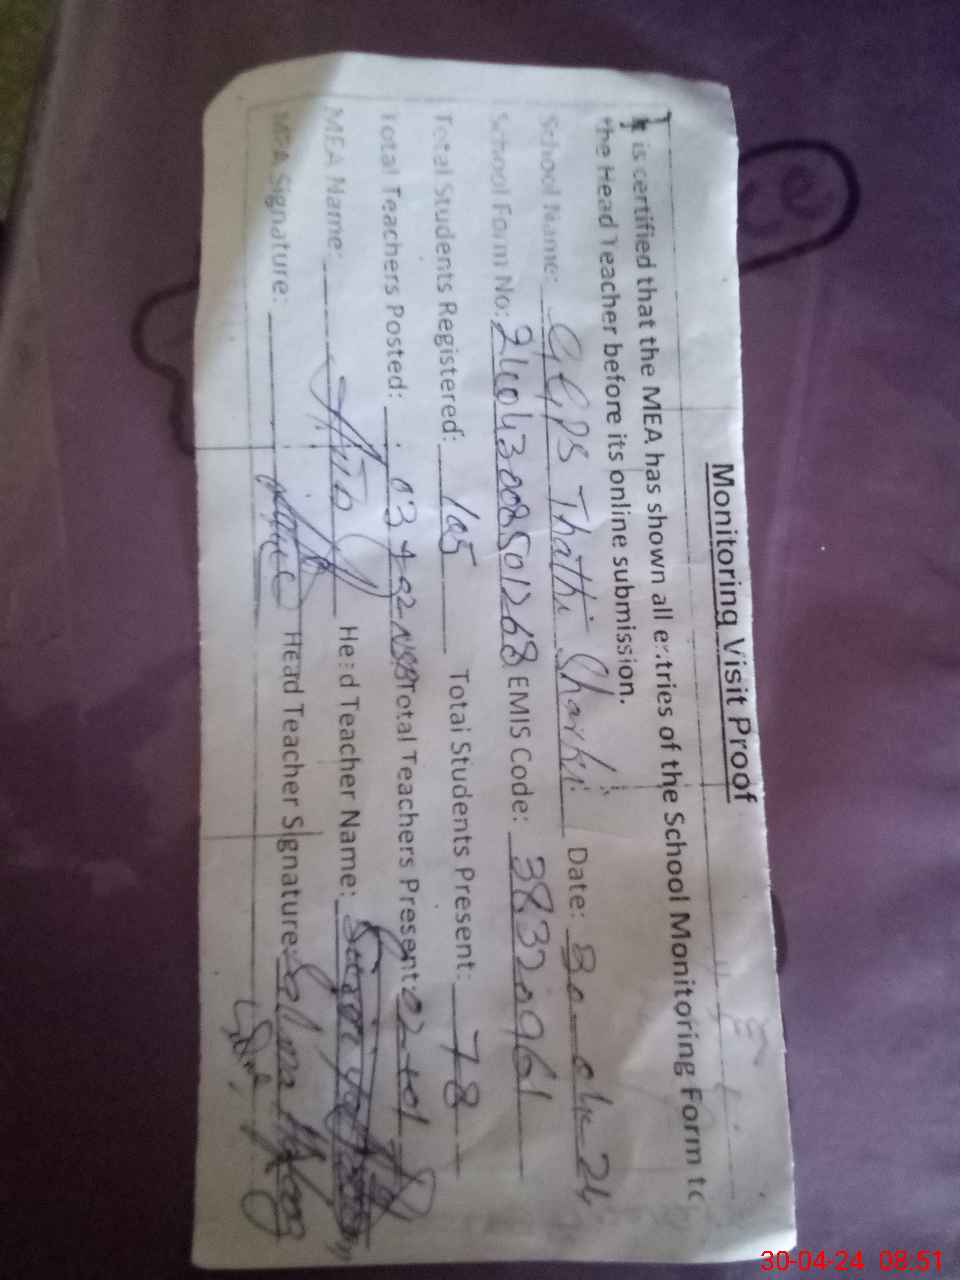 Monitoring Visit Proof
It is certified that the MEA has shown all entries of the School Monitoring Form to
the Head Teacher before its online submission.
School Name: GGPS Thathi Sharki Date: 30-04-24
School Form No: 240430085501268 EMIS Code: 38320961
Total Students Registered: 105 Total Students Present: 78
Total Teachers Posted: 03+02-NSB Total Teachers Present: 02+01
MEA Name: Head Teacher Name:
MEA Signature: Head Teacher Signature: Salma
30-04-24 08:51